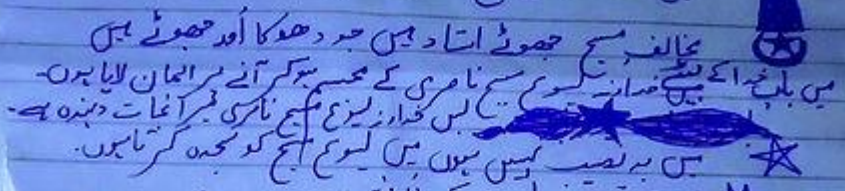 مخالف مسیح جھوٹے استاد ہیں جو دھوکا اور جھوٹے ہیں
میں باپ خدا کے بیٹے خداوند یسوع مسیح ناصری کے مجسم ہو کر آنے پر ایمان لایا ہوں۔
بس خداوند یسوع مسیح ناصری میرا نجات دہندہ ہے۔
میں بد نصیب نہیں ہوں میں یسوع مسیح کو سجدہ کرتا ہوں۔